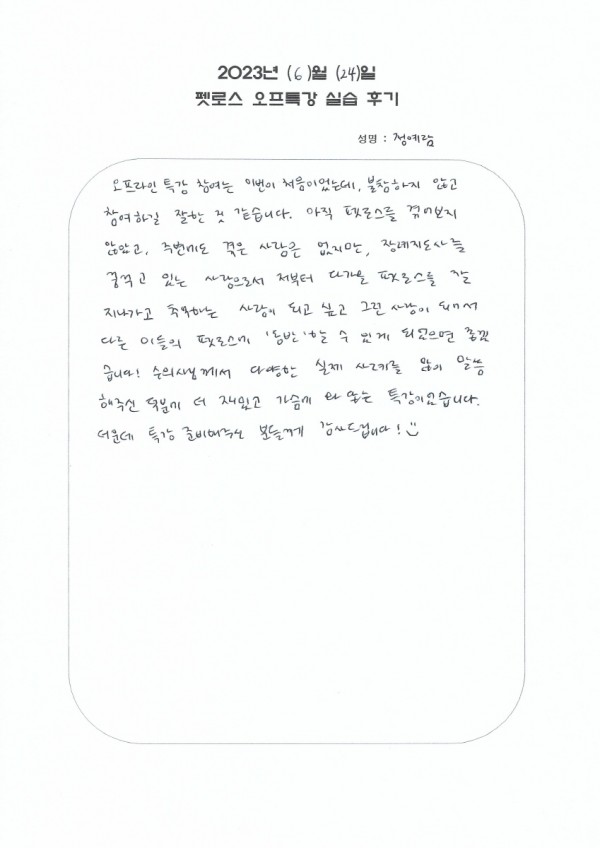 2023년 (6)월 (24)일
펫로스 오프특강 실습 후기
성명 : 정예람
오프라인 특강 참여는 이번이 처음이었는데, 불참하지 않고
참여하길 잘한 것 같습니다. 아직 펫로스를 겪어보지
않았고, 주변에도 겪은 사람은 없지만, 장례지도사를
꿈꾸고 있는 사람으로서 저부터 다가올 펫로스를 잘
지나가고 극복하는 사람이 되고 싶고 그런 사람이 돼서
다른 이들의 펫로스에 '동반'할 수 있게 되었으면 좋겠
습니다! 수의사님께서 다양한 실제 사례를 많이 말씀
해주신 덕분에 더 재밌고 가슴에 와 닿는 특강이었습니다.
더운데 특강 준비해주신 분들께 감사드립니다!